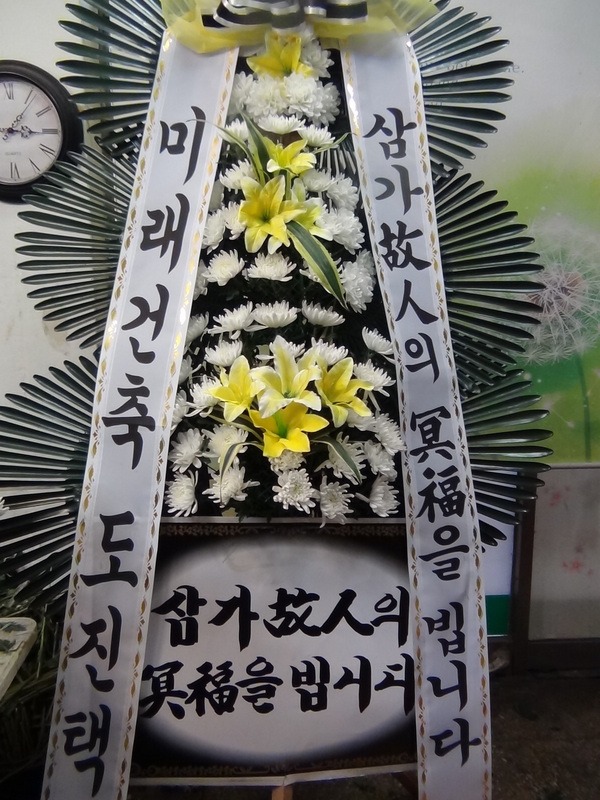 미래건축 도진택
삼가故人의 冥福을 빕니다
삼가故人의
冥福을빕니다